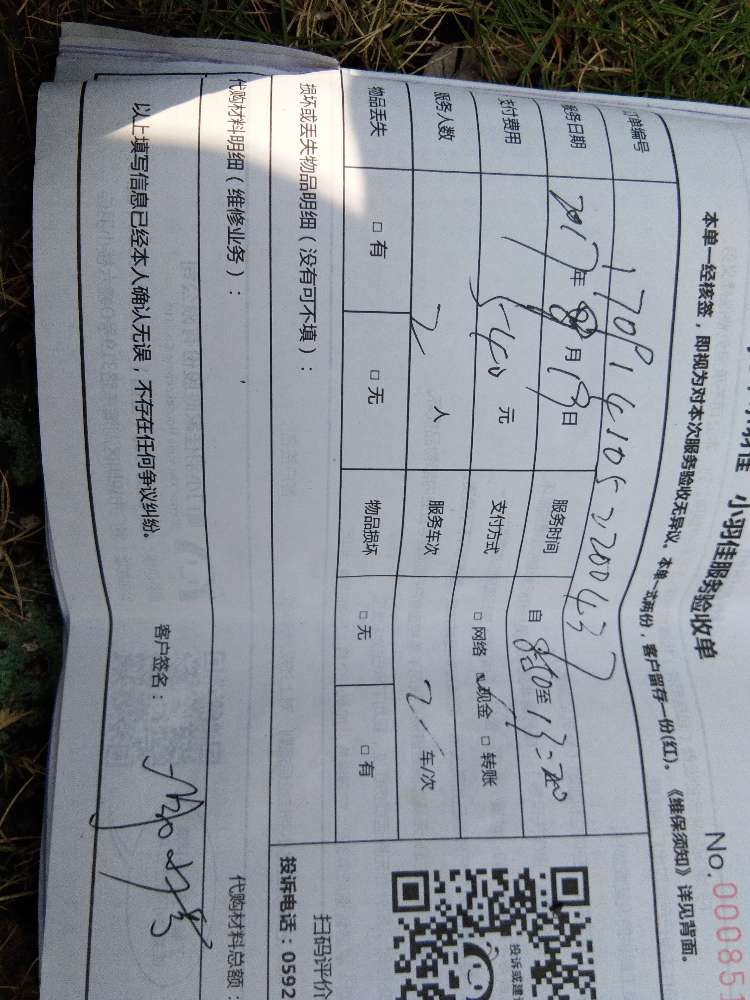 小羽佳服务验收单
No.00085
本单一经核签，即视为对本次服务验收无异议。本单一式两份，客户留存一份(红)。《维保须知》详见背面。
订单编号 1708141052200437
服务日期 2017年8月19日 服务时间 自8:50至13:20
支付费用 540元 支付方式 □网络 ☑现金 □转账
服务人数 2人 服务车次 2车/次
物品丢失 □有 □无 物品损坏 □无 □有
损坏或丢失物品明细（没有可不填）：
代购材料明细（维修业务）：
代购材料总额：
以上填写信息已经本人确认无误，不存在任何争议纠纷。 客户签名：
投诉或建
扫码评价
投诉电话：0592